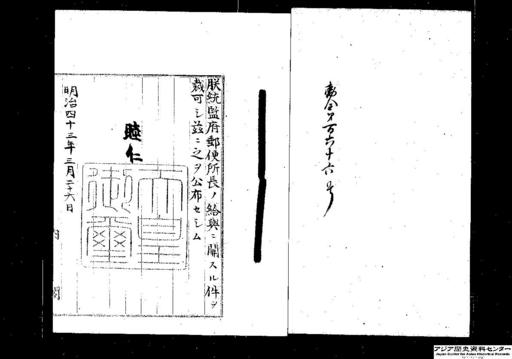 勅令第百六十六号
朕統監府郵便所長ノ給与ニ関スル件ヲ
裁可シ茲ニ之ヲ公布セシム
睦仁
天皇御璽
明治四十三年三月二十六日
内閣
アジア歴史資料センター
Japan Center for Asian Historical Records